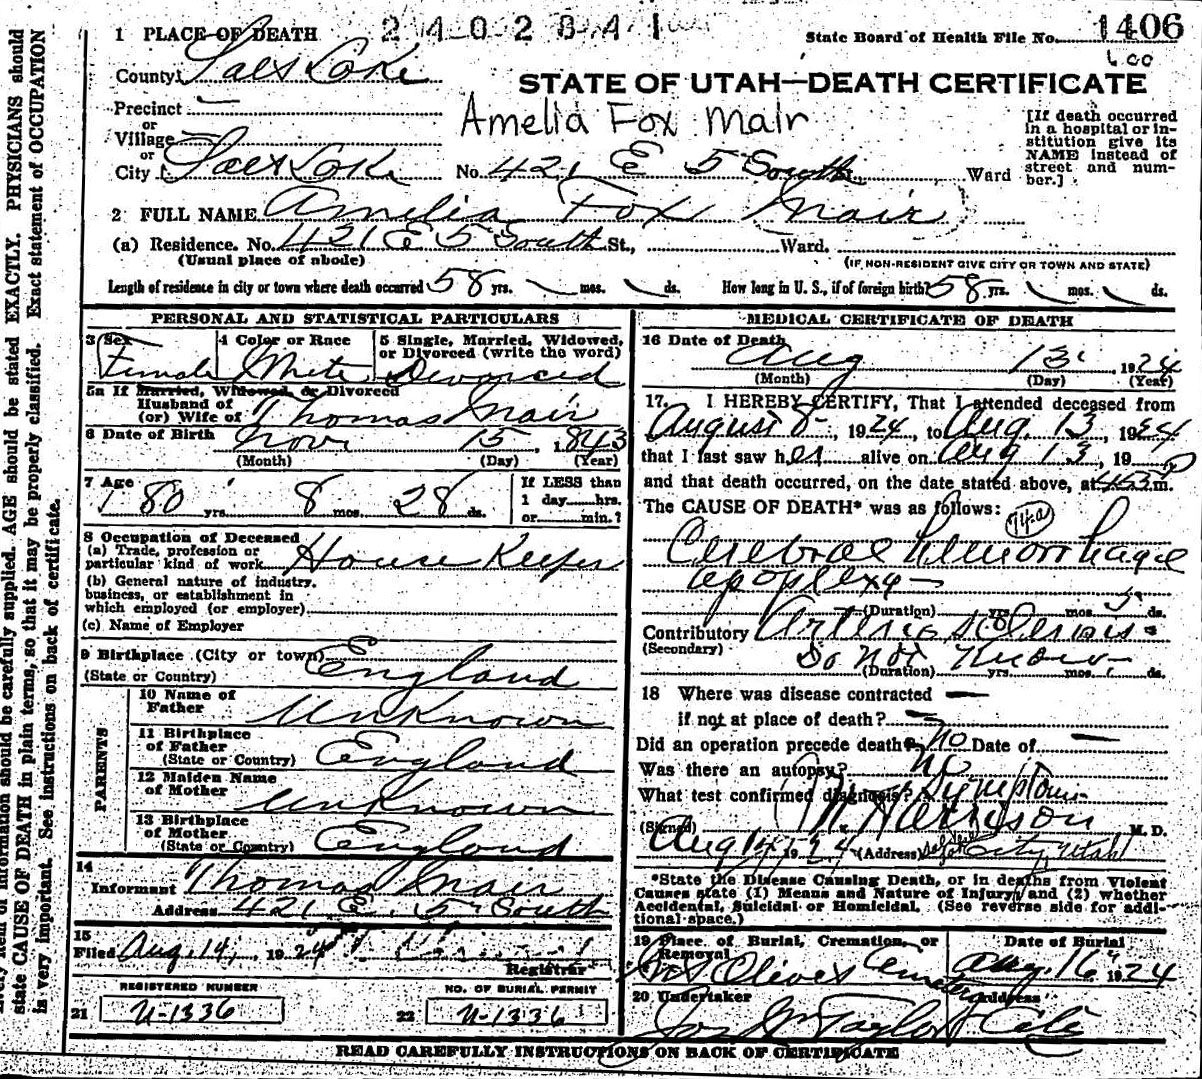 1 PLACE OF DEATH 2402841 State Board of Health File No. 1406
County Salt Lake 600
STATE OF UTAH—DEATH CERTIFICATE
Precinct —
or
Village
or
City Salt Lake No. 421 E 5 South Ward
Amelia Fox Mair
[If death occurred
in a hospital or in-
stitution give its
NAME instead of
street and num-
ber.]
2 FULL NAME Amelia Fox Mair
(a) Residence. No. 421 E 5 South St., Ward.
(Usual place of abode) (IF NON-RESIDENT GIVE CITY OR TOWN AND STATE)
Length of residence in city or town where death occurred 58 yrs. mos. ds. How long in U. S., if of foreign birth? 58 yrs. mos. ds.
PERSONAL AND STATISTICAL PARTICULARS
3 Sex 4 Color or Race 5 Single, Married, Widowed,
or Divorced (write the word)
Female White Divorced
5a If Married, Widowed, or Divorced
Husband of
(or) Wife of Thomas Mair
6 Date of Birth Nov 15, 1843
(Month) (Day) (Year)
7 Age 80 yrs. 8 mos. 28 ds.
If LESS than
1 day hrs.
or min.?
8 Occupation of Deceased
(a) Trade, profession or
particular kind of work House Keeper
(b) General nature of industry,
business, or establishment in
which employed (or employer)
(c) Name of Employer
9 Birthplace (City or town)
(State or Country) England
PARENTS
10 Name of
Father Unknown
11 Birthplace
of Father
(State or Country) England
12 Maiden Name
of Mother Unknown
13 Birthplace
of Mother
(State or Country) England
14
Informant Thomas Mair
Address 421 E. 5 South
15
Filed Aug. 14, 1924
Registrar
REGISTERED NUMBER NO. OF BURIAL PERMIT
21 U-1336 22 U-1336
MEDICAL CERTIFICATE OF DEATH
16 Date of Death Aug 13 1924
(Month) (Day) (Year)
17. I HEREBY CERTIFY, That I attended deceased from
August 8, 1924, to Aug. 13, 1924
that I last saw her alive on Aug 13, 19
and that death occurred, on the date stated above, at m.
The CAUSE OF DEATH* was as follows:
74-a
Cerebral hemorrhage
apoplexy —
(Duration) yrs. mos. 5 ds.
Contributory Arterio sclerosis
(Secondary) Do not know
(Duration) yrs. mos. ds.
18 Where was disease contracted —
if not at place of death? —
Did an operation precede death? no Date of —
Was there an autopsy? no
What test confirmed diagnosis? Symptoms
(Signed) Harrison M. D.
Aug 14, 1924 (Address) Salt Lake City, Utah
*State the Disease Causing Death, or in deaths from Violent
Causes state (1) Means and Nature of Injury; and (2) whether
Accidental, Suicidal or Homicidal. (See reverse side for addi-
tional space.)
19 Place of Burial, Cremation, or Date of Burial
Removal
Mt Olivet Cemetery Aug. 16, 1924
20 Undertaker Address
Jos Wm Taylor City
READ CAREFULLY INSTRUCTIONS ON BACK OF CERTIFICATE
information should be carefully supplied. AGE should be stated EXACTLY. PHYSICIANS should
state CAUSE OF DEATH in plain terms, so that it may be properly classified. Exact statement of OCCUPATION
is very important. See instructions on back of certificate.